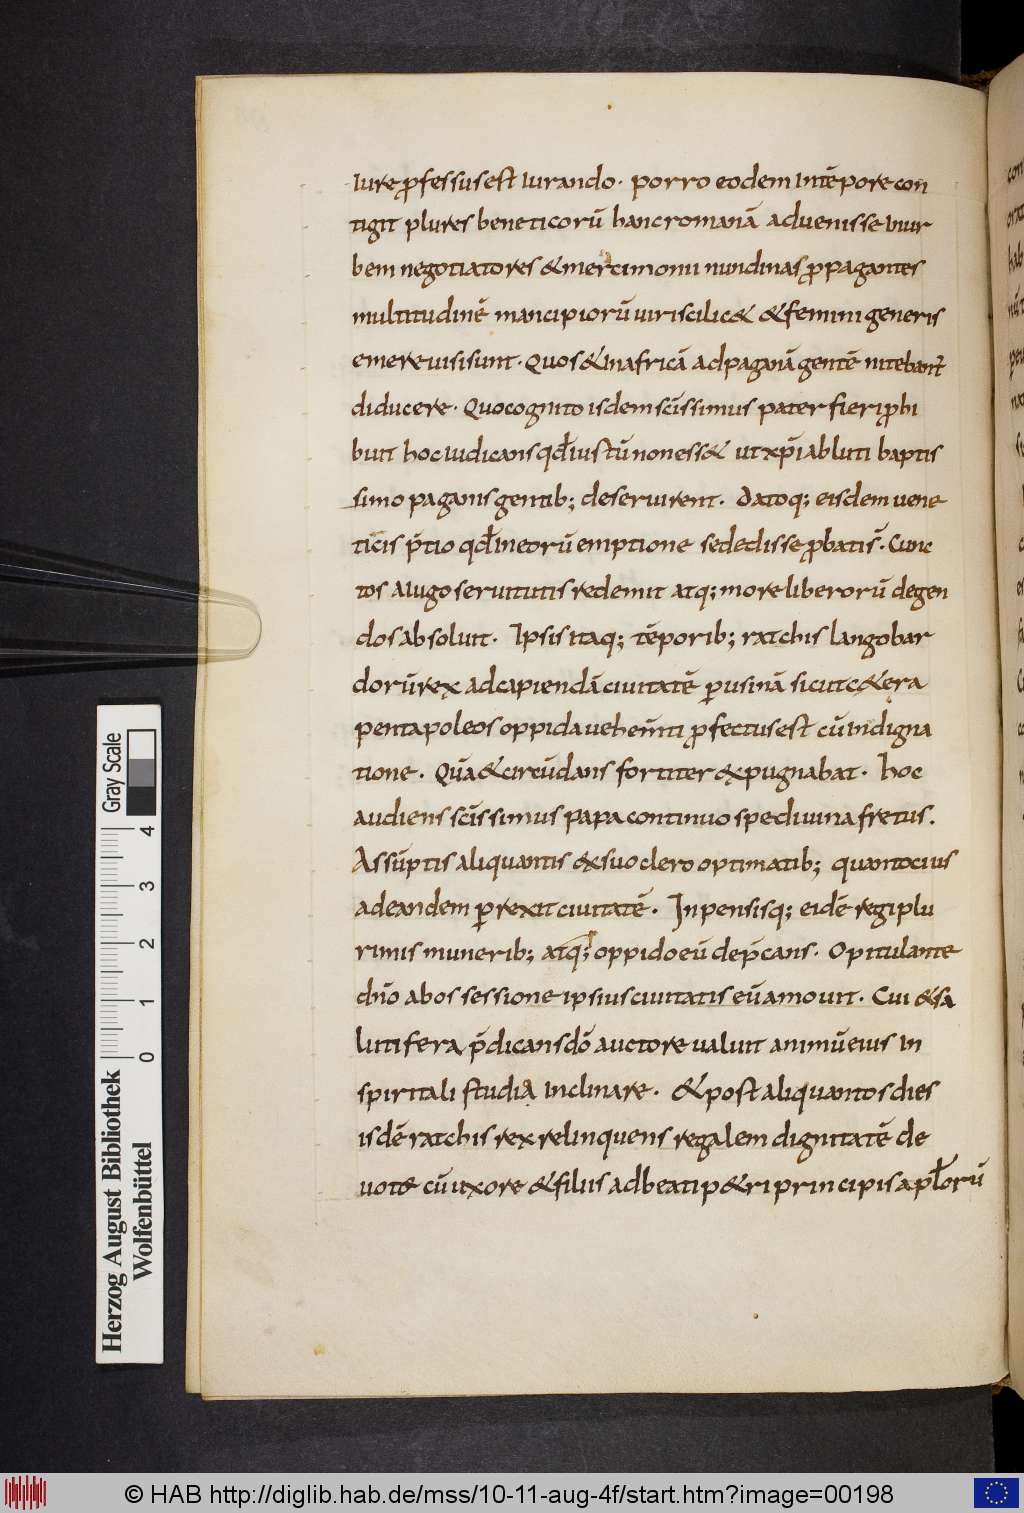 iure ꝓfessus est iurando. porro eodem intēpore con
tigit plures beneticorū hanc romanā aduenisse inur
bem negotiatores & mercimonii nundinas ꝓpagantes
multitudinē mancipiorū uiriscilic& & feminigeneris
emere uisi sunt. Quos & inafricā adpaganā gentē nitebant̄
diducere. Quo cognito isdem sc̄issimus pater fieri ꝓhi
buit hoc iudicans qđ iustū non ess& ut xp̄i abluti baptis
simo paganis gentib; deseruirent. Datoq; eisdem uene
ticis p̄tio qđ ineorū emptione se dedisse ꝓbatis̄. Cunc
tos aiugo seruitutis redemit atq; more liberorū degen
dos absoluit. Ipsis itaq; tēporib; ratchis langobar
dorū rex ad capiendā ciuitatē ꝑusinā sicut c&ęra
pentapoleos oppida uehem̄ti ꝓfectus est cū indigna
tione. Quā & circūdans fortiter expugnabat. hoc
audiens sc̄issimus papa continuo spe diuina fretus.
Assūptis aliquantis exsuo clero optimatib; quantocius
ad eandem ꝑrexit ciuitatē. Inpensisq; eidē regi plu
rimis munerib; atq; oppido eū dep̄cans. Opitulante
dn̄o abossessione ipsius ciuitatis eū amouit. Cui & sa
lutifera p̄dicans dō auctore ualuit animū eius in
spiritali studia inclinare. & post aliquantos dies
isdē ratchis rex relinquens regalem dignitatē de
uote cū uxore & filiis ad beati p&ri principis apłorū
Herzog August Bibliothek
Wolfenbüttel
0 1 2 3 4
Gray Scale
© HAB http://diglib.hab.de/mss/10-11-aug-4f/start.htm?image=00198